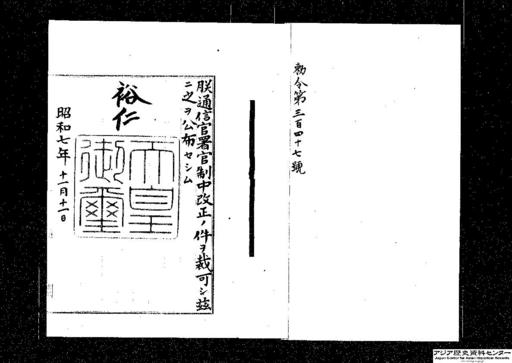 勅令第三百四十七號
朕通信官署官制中改正ノ件ヲ裁可シ茲
ニ之ヲ公布セシム
裕仁
天皇
御璽
昭和七年十一月十一日
アジア歴史資料センター
Japan Center for Asian Historical Records